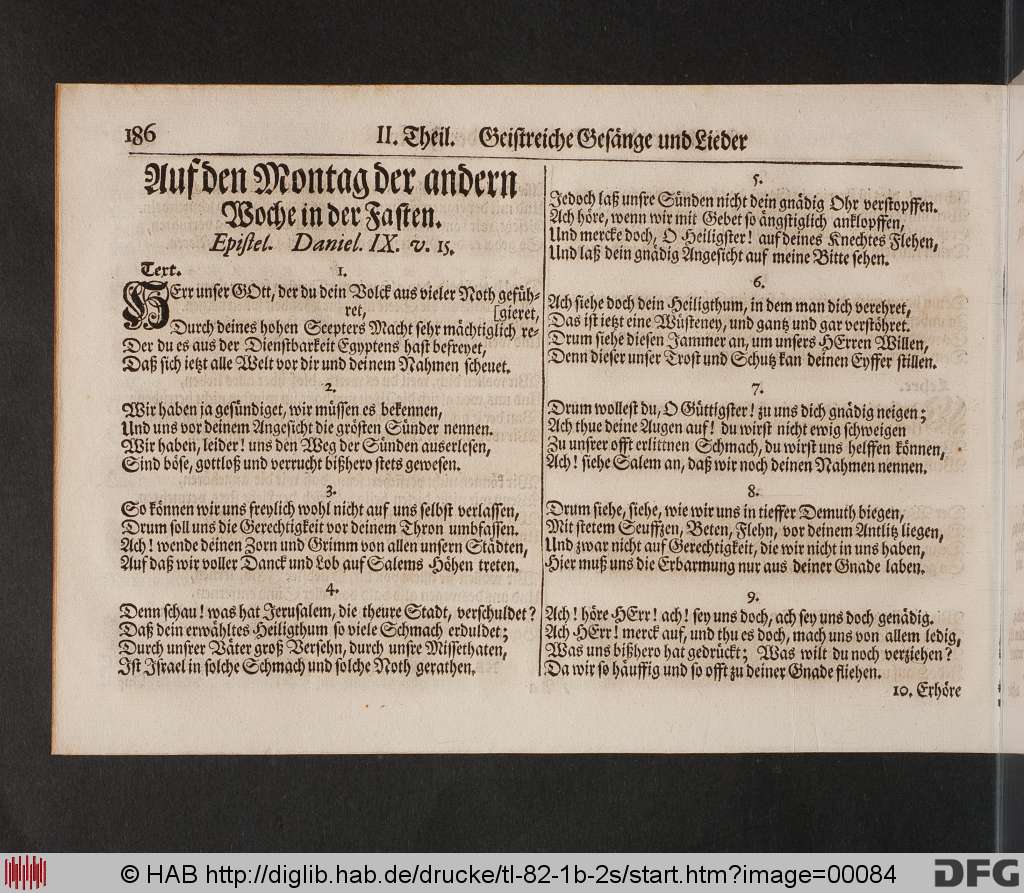 186
II. Theil. Geistreiche Gesänge und Lieder
Auf den Montag der andern
Woche in der Fasten.
Epistel. Daniel. IX. v. 15.
Text. 1.
HErr unser GOtt, der du dein Volck aus vieler Noth gefüh-
ret, [gieret,
Durch deines hohen Scepters Macht sehr mächtiglich re-
Der du es aus der Dienstbarkeit Egyptens hast befreyet,
Daß sich ietzt alle Welt vor dir und deinem Nahmen scheuet.
2.
Wir haben ja gesündiget, wir müssen es bekennen,
Und uns vor deinem Angesicht die grösten Sünder nennen.
Wir haben, leider! uns den Weg der Sünden auserlesen,
Sind böse, gottloß und verrucht bißhero stets gewesen.
3.
So können wir uns freylich wohl nicht auf uns selbst verlassen,
Drum soll uns die Gerechtigkeit vor deinem Thron umbfassen.
Ach! wende deinen Zorn und Grimm von allen unsern Städten,
Auf daß wir voller Danck und Lob auf Salems Höhen treten.
4.
Denn schau! was hat Jerusalem, die theure Stadt, verschuldet?
Daß dein erwähltes Heiligthum so viele Schmach erduldet;
Durch unsrer Väter groß Versehn, durch unsre Missethaten,
Ist Israel in solche Schmach und solche Noth gerathen.
5.
Jedoch laß unsre Sünden nicht dein gnädig Ohr verstopffen.
Ach höre, wenn wir mit Gebet so ängstiglich anklopffen,
Und mercke doch, O Heiligster! auf deines Knechtes Flehen,
Und laß dein gnädig Angesicht auf meine Bitte sehen.
6.
Ach siehe doch dein Heiligthum, in dem man dich verehret,
Das ist ietzt eine Wüsteney, und gantz und gar verstöhret.
Drum siehe diesen Jammer an, um unsers HErren Willen,
Denn dieser unser Trost und Schutz kan deinen Eyffer stillen.
7.
Drum wollest du, O Güttigster! zu uns dich gnädig neigen;
Ach thue deine Augen auf! du wirst nicht ewig schweigen
Zu unsrer offt erlittnen Schmach, du wirst uns helffen können,
Ach! siehe Salem an, daß wir noch deinen Nahmen nennen.
8.
Drum siehe, siehe, wie wir uns in tieffer Demuth biegen,
Mit stetem Seuffzen, Beten, Flehn, vor deinem Antlitz liegen,
Und zwar nicht auf Gerechtigkeit, die wir nicht in uns haben,
Hier muß uns die Erbarmung nur aus deiner Gnade laben.
9.
Ach! höre HErr! ach! sey uns doch, ach sey uns doch genädig.
Ach HErr! merck auf, und thu es doch, mach uns von allem ledig,
Was uns bißhero hat gedrückt; Was wilt du noch verziehen?
Da wir so häuffig und so offt zu deiner Gnade fliehen.
10. Erhöre
© HAB http://diglib.hab.de/drucke/tl-82-1b-2s/start.htm?image=00084
DFG